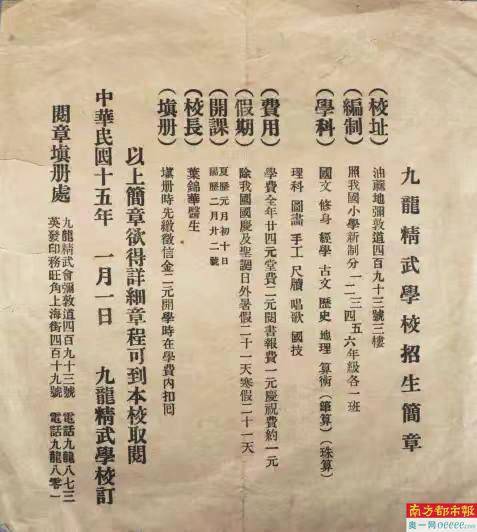 九龍精武學校招生簡章
(校址) 油蔴地彌敦道四百九十三號三樓
(編制) 照我國小學新制分一二三四五六年級各一班
(學科) 國文 修身 經學 古文 歷史 地理 算術 (筆算) (珠算)
理科 圖畫 手工 尺牘 唱歌 國技
(費用) 學費全年廿四元堂費二元閱書報費一元慶祝費約一元
(假期) 除我國國慶及聖誕日外暑假二十一天寒假二十一天
(開課) 夏歷元月初十日
陽歷二月廿二號
(校長) 葉錦華醫生
(填册) 填册時先繳徵信金二元開學時在學費內扣囘
以上簡章欲得詳細章程可到本校取閱
中華民國十五年 一月一日 九龍精武學校訂
閱章填册處 九龍精武會彌敦道四百九十三號 電話九龍八七三
英發印務旺角上海街四百十九號 電話九龍八零一
南方都市報
奥一网oeeee.com